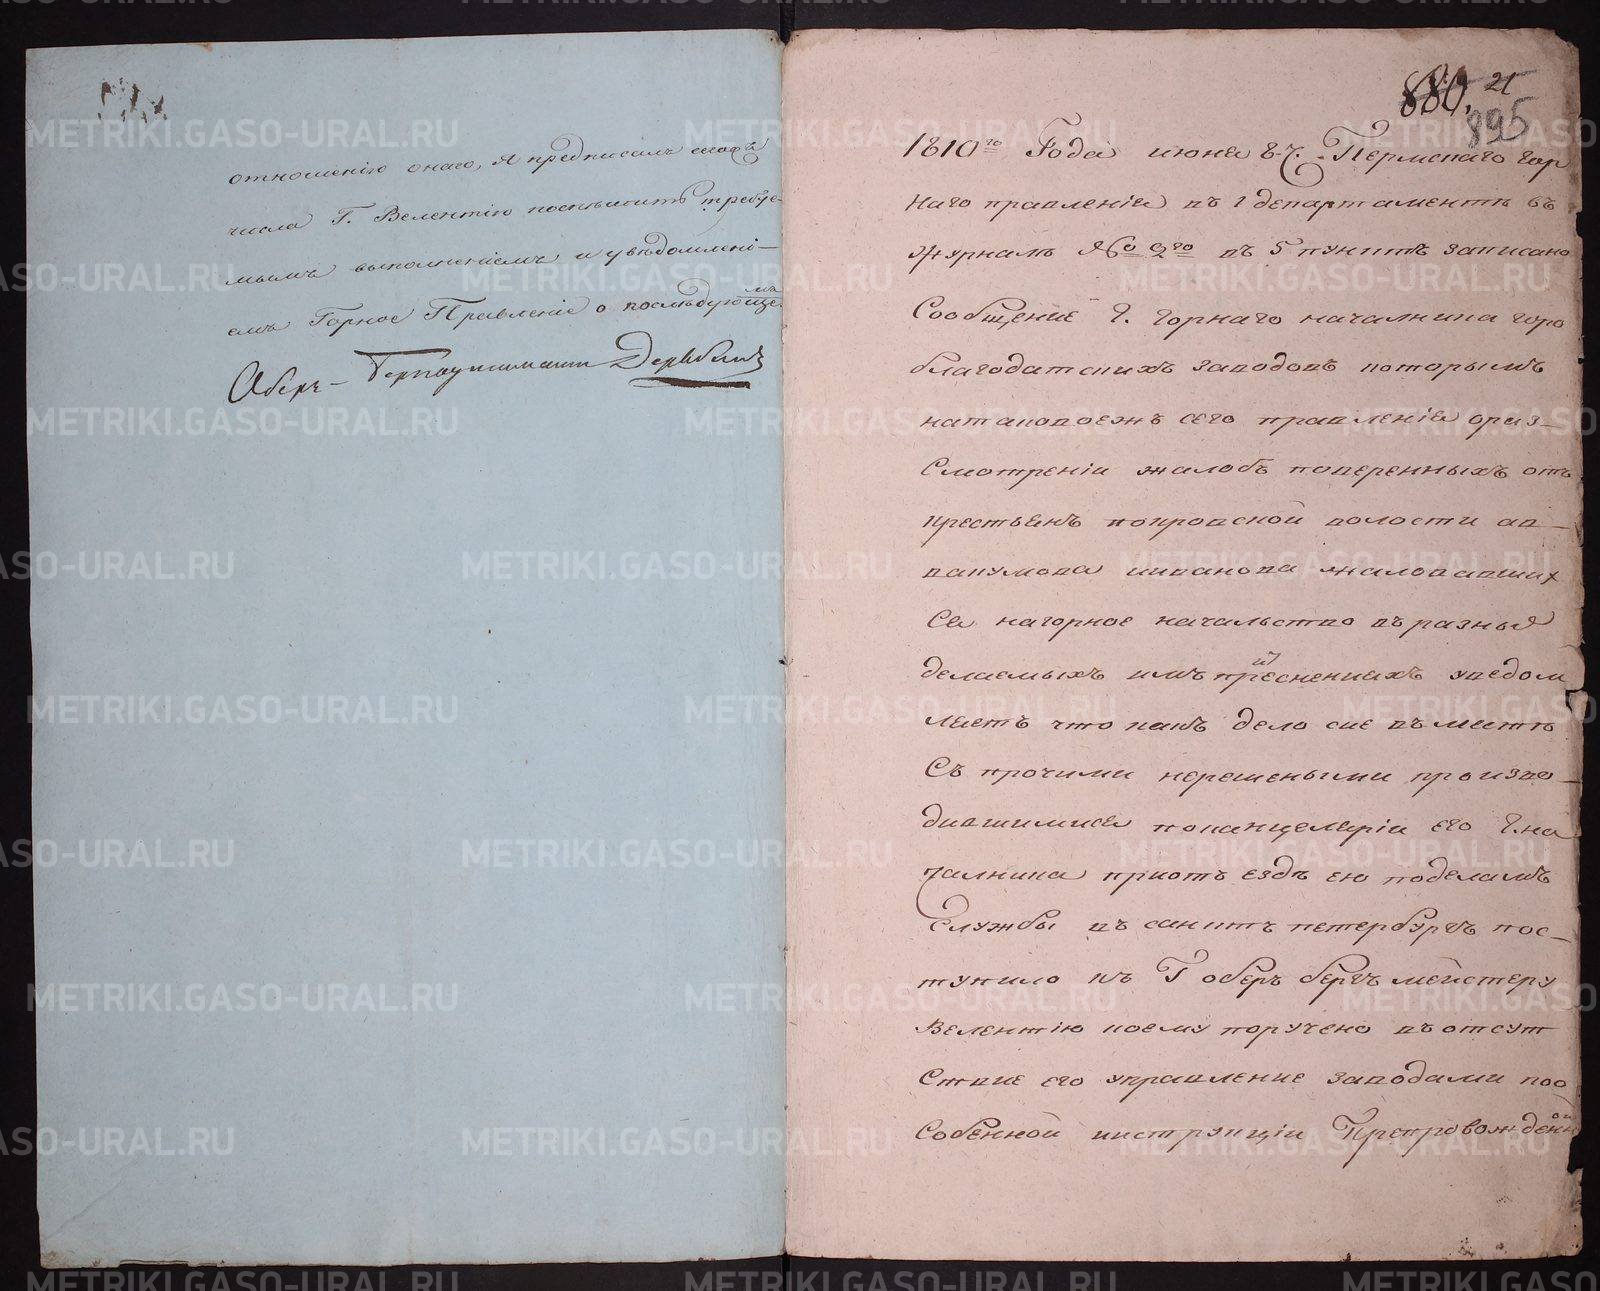 отношенію онаго, я предписалъ сегожъ
числа Г. Велентію поспѣшить требуе-
мымъ выполненіемъ и увѣдомлені-
емъ Горное Правленіе о послѣдующе
мъ
Оберъ-Бергауптманъ Дерябинъ
880. 21
895
1810го Года июня 8 ч. Пермскаго гор
наго правленія въ 1 департаментѣ въ
журналѣ въ 5 пунктѣ записано
Сообщение Г. горнаго началника горо
благодатскихъ заводовъ которымъ
натаковоежъ сего правленія ораз-
смотреніи жалобъ поверенныхъ отъ
крестьянъ покровской волости ав-
вакумова ииванова жаловавших
ся нагорное началство въразныя
делаемыхъ имъ притесненияхъ уведом
ляетъ что какъ дело сие въместѣ
Съ прочими нерешеными произво-
дившимися поканцеляріи его Г. на
чалника приотъ ездѣ ею поделамъ
Службы въ санктъ петербургъ пос-
тупило къ Г оберъ бергъ мейстеру
Велентію коему поручено въ отсут
ствие его управление заводами поо
собенной инструкціи Препровожденной